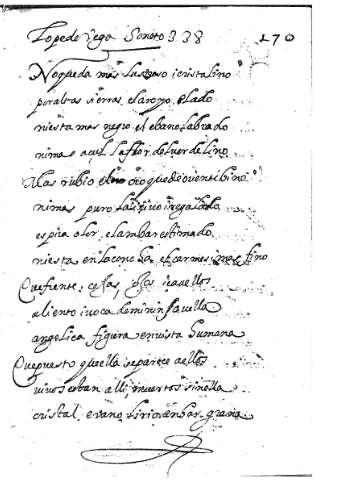 Lope de Vega Soneto 338 170
No queda mas lustroso i cristalino
por altas sierras, el aroyo elado
ni esta mas negro el ebano labrado
ni mas açul la flor del verde lino
Mas rubio el oro que de orient bino
ni mas puro lasçivo i regalado
espira olor, el ambar estimado
ni esta en la concha, el carmesi mas fino
Que frente, cejas, ojos, icavellos
aliento i voca de mi ninfa vella
angelica figura en vista humana
Que puesto que ella se parece a ellos
vivos estan alli, muertos sin ella
cristal, evano, lirio anbar grana